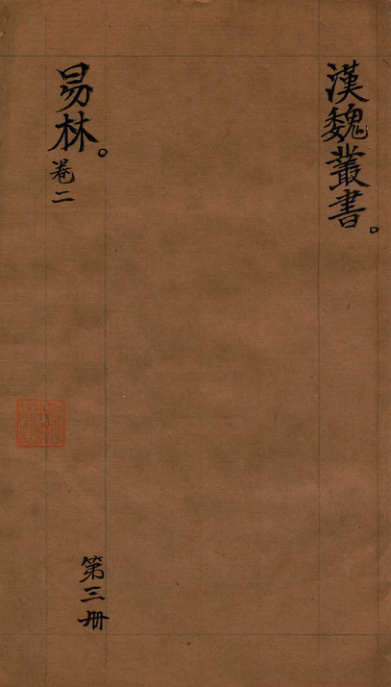 漢魏叢書。
易林。卷二
第三册